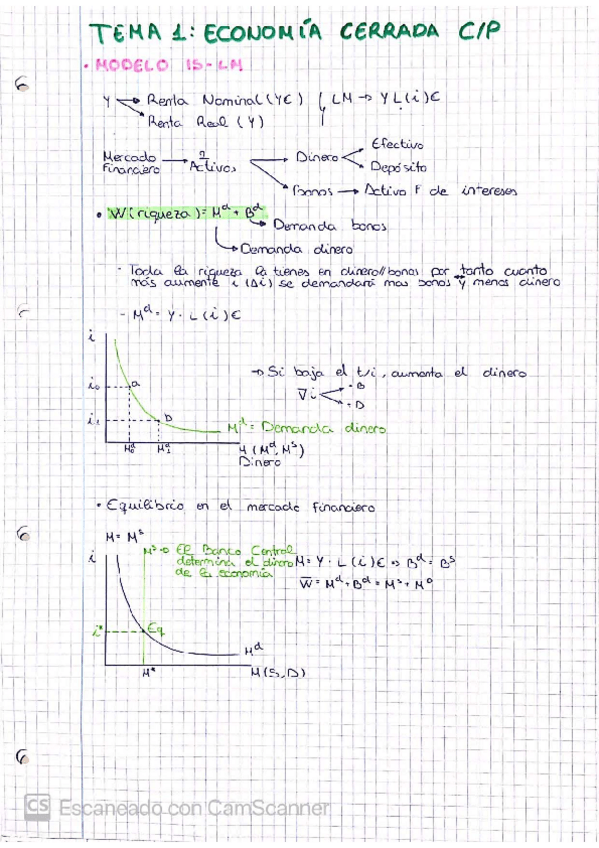 TEMA 1: ECONOMÍA CERRADA C/P
• MODELO IS-LM
Y → Renta Nominal (Y€) LM → Y L(i)€
→ Renta Real (Y)
Mercado Financiero → 2 Activos → Dinero Efectivo
Depósito
Bonos → Activo F de intereses
• W(riqueza) = Mᵈ + Bᵈ
→ Demanda bonos
→ Demanda dinero
- Toda la riqueza la tienes en dinero//bonos por tanto cuanto
más aumente i (Δi) se demandará mas bonos y menos dinero
- Mᵈ = Y · L(i)€
i
→ Si baja el t/i, aumenta el dinero
i₀ a
∇i
i₁ b
Mᵈ = Demanda dinero
M₀ᵈ M₁ᵈ M (Mᵈ, Mˢ)
Dinero
• Equilibrio en el mercado financiero
M = Mˢ
i Mˢ → El Banco Central
determina el dinero
de la economía
M = Y · L(i)€ => Bᵈ = Bˢ
W̅ = Mᵈ + Bᵈ = Mˢ + M
i* Eq
Mᵈ
M* M(S,D)
CS Escaneado con CamScanner